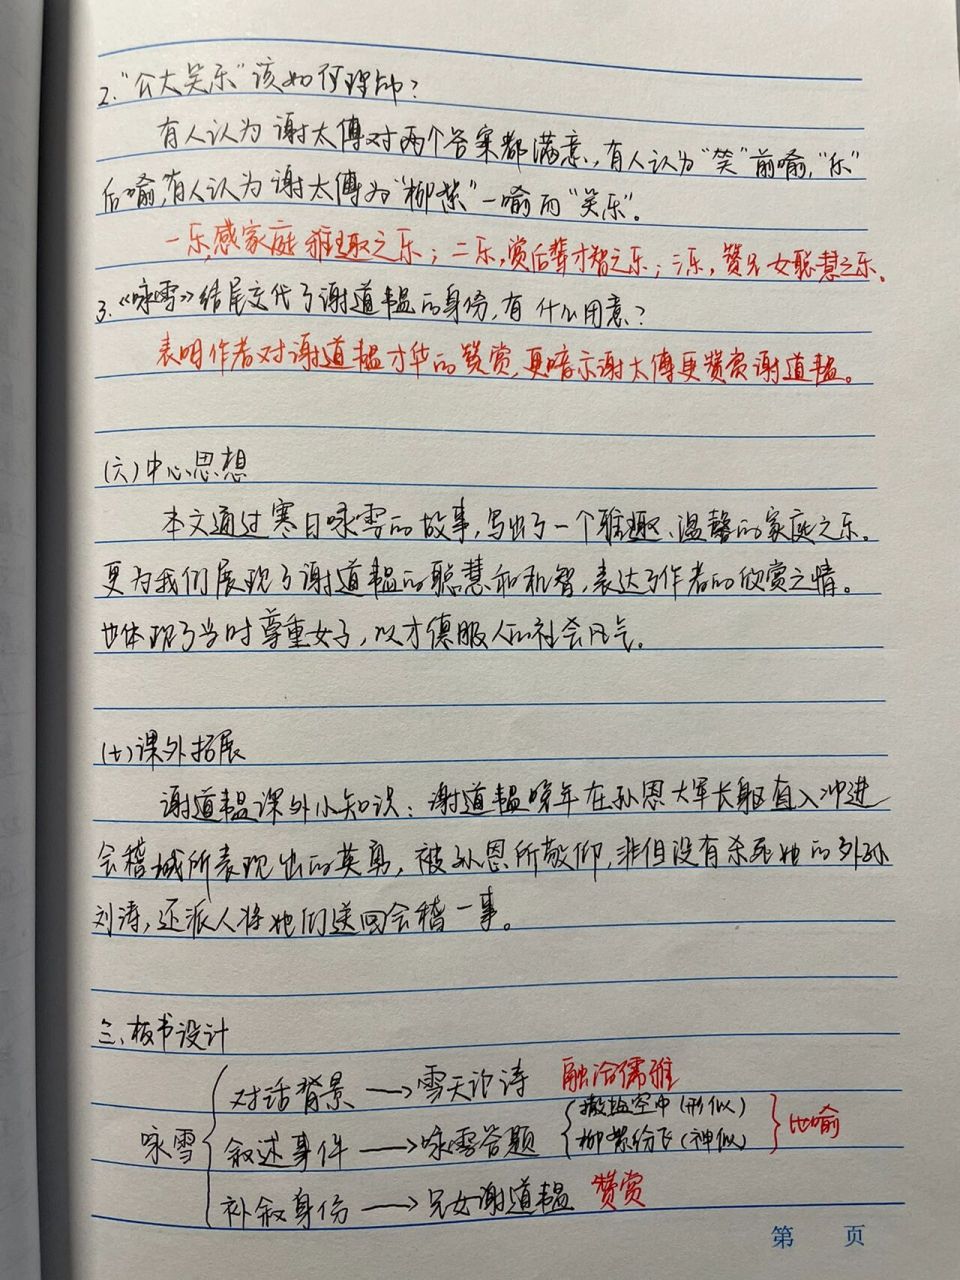 2."公大笑乐"该如何理解?
有人认为谢太傅对两个答案都满意,有人认为"笑"前喻,"乐"
后喻,有人认为谢太傅为"柳絮"一喻而"笑乐"。
一乐,感家庭雅趣之乐;二乐,赏后辈才智之乐;三乐,赞兄女聪慧之乐。
3.《咏雪》结尾交代了谢道韫的身份,有什么用意?
表明作者对谢道韫才华的赞赏,更暗示谢太傅更赞赏谢道韫。
(六)中心思想
本文通过寒日咏雪的故事,写出了一个雅趣、温馨的家庭之乐。
更为我们展现了谢道韫的聪慧和机智,表达了作者的欣赏之情。
也体现了当时尊重女子,以才德服人的社会风气。
(七)课外拓展
谢道韫课外小知识:谢道韫晚年在孙恩大军长驱直入冲进
会稽城所表现出的英勇,被孙恩所敬仰,非但没有杀死她的外孙
刘涛,还派人将她们送回会稽一事。
三、板书设计
对话背景→雪天论诗 融洽儒雅
咏雪 叙述事件→咏雪答题 撒盐空中(形似) 柳絮纷飞(神似) 比喻
补叙身份→兄女谢道韫 赞赏
第 页